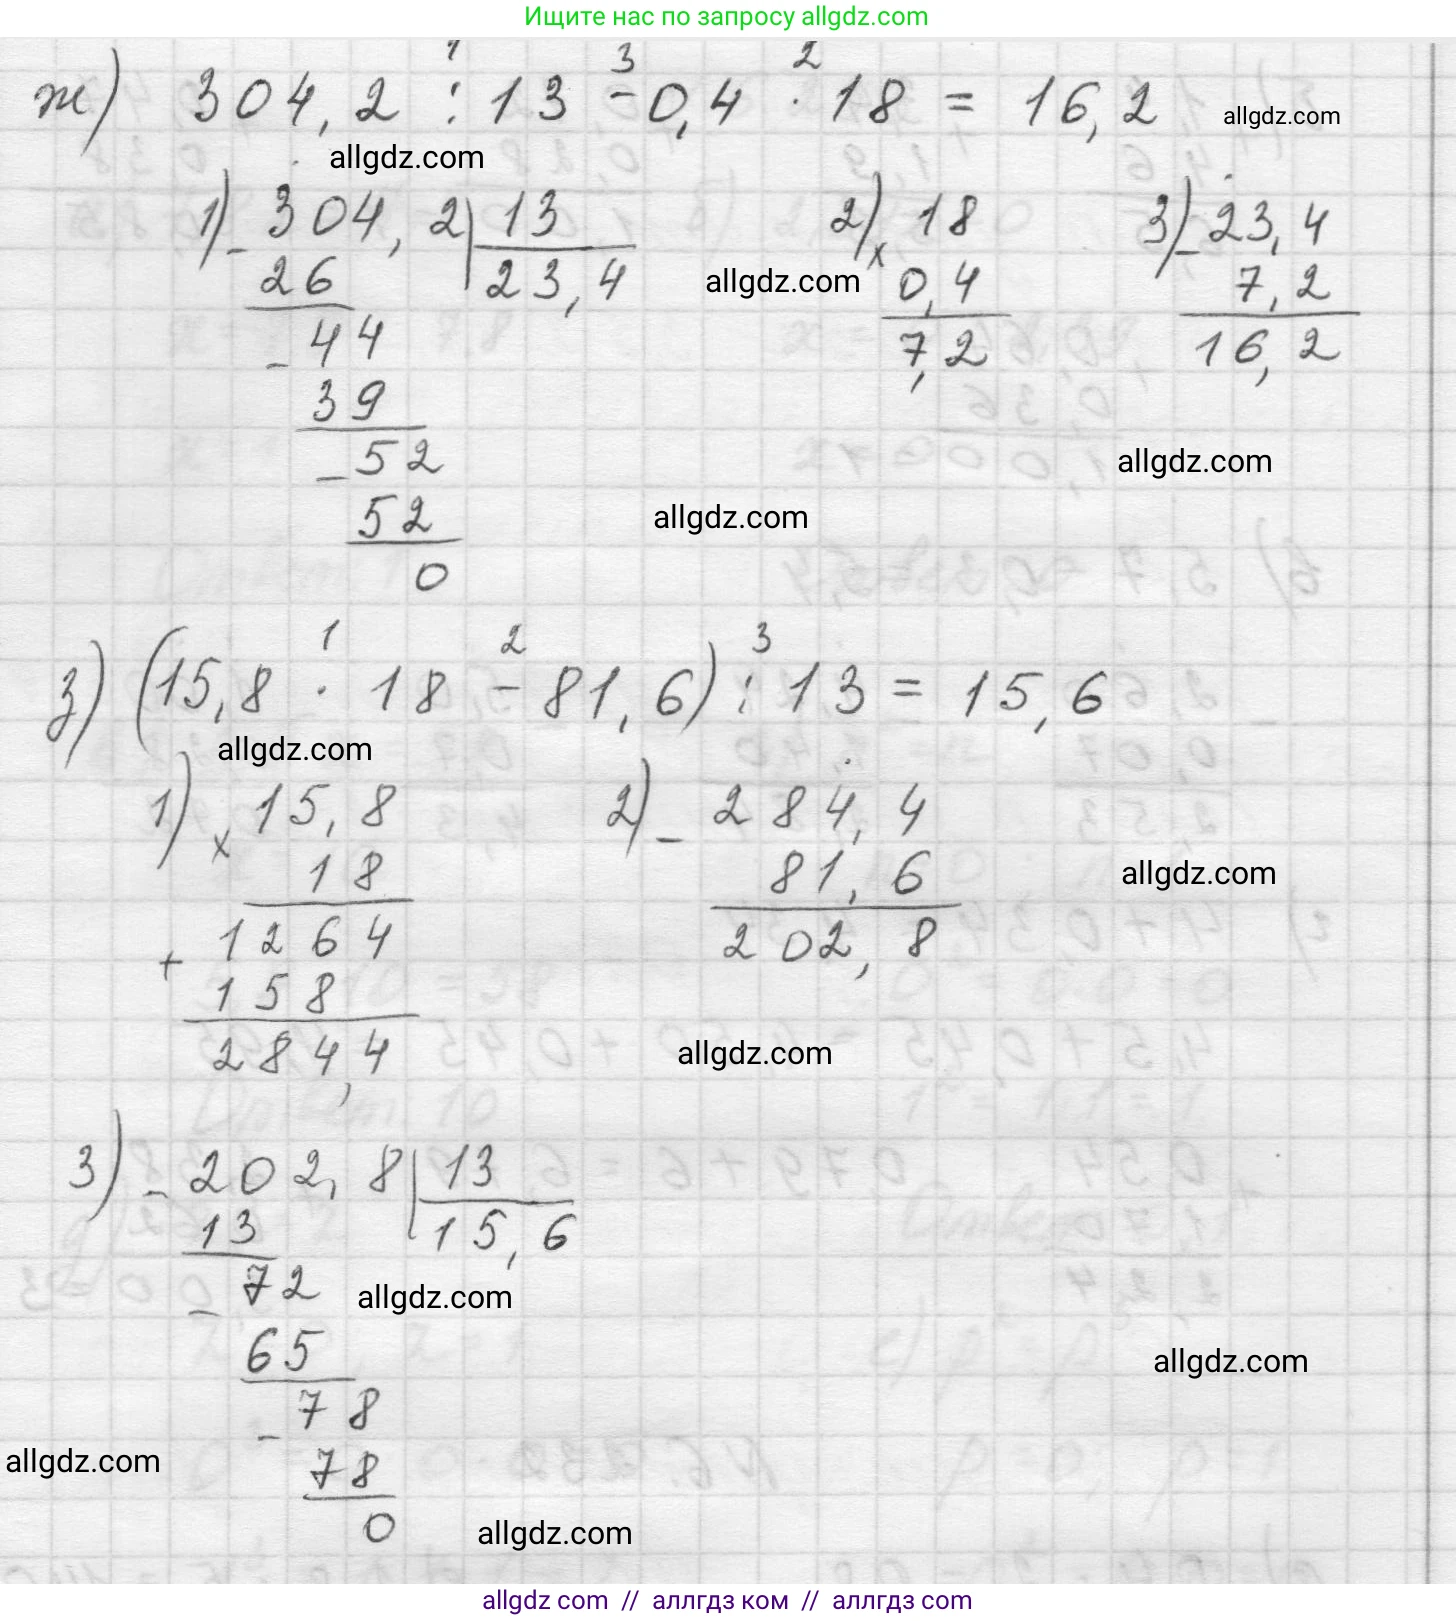 Ищите нас по запросу allgdz.com
1 3 2
ж) 304,2 : 13 - 0,4 · 18 = 16,2
allgdz.com
allgdz.com
1) - 304,2 | 13
26 23,4
- 44
39
- 52
52
0
2) × 18
0,4
7,2
3) - 23,4
7,2
16,2
allgdz.com
allgdz.com
allgdz.com
1 2 3
з) (15,8 · 18 - 81,6) : 13 = 15,6
allgdz.com
1) × 15,8
18
+ 1264
158
284,4
2) - 284,4
81,6
202,8
allgdz.com
allgdz.com
3) - 202,8 | 13
13 15,6
- 72
65
- 78
78
0
allgdz.com
allgdz.com
allgdz.com
allgdz.com
allgdz com // аллгдз ком // аллгдз com